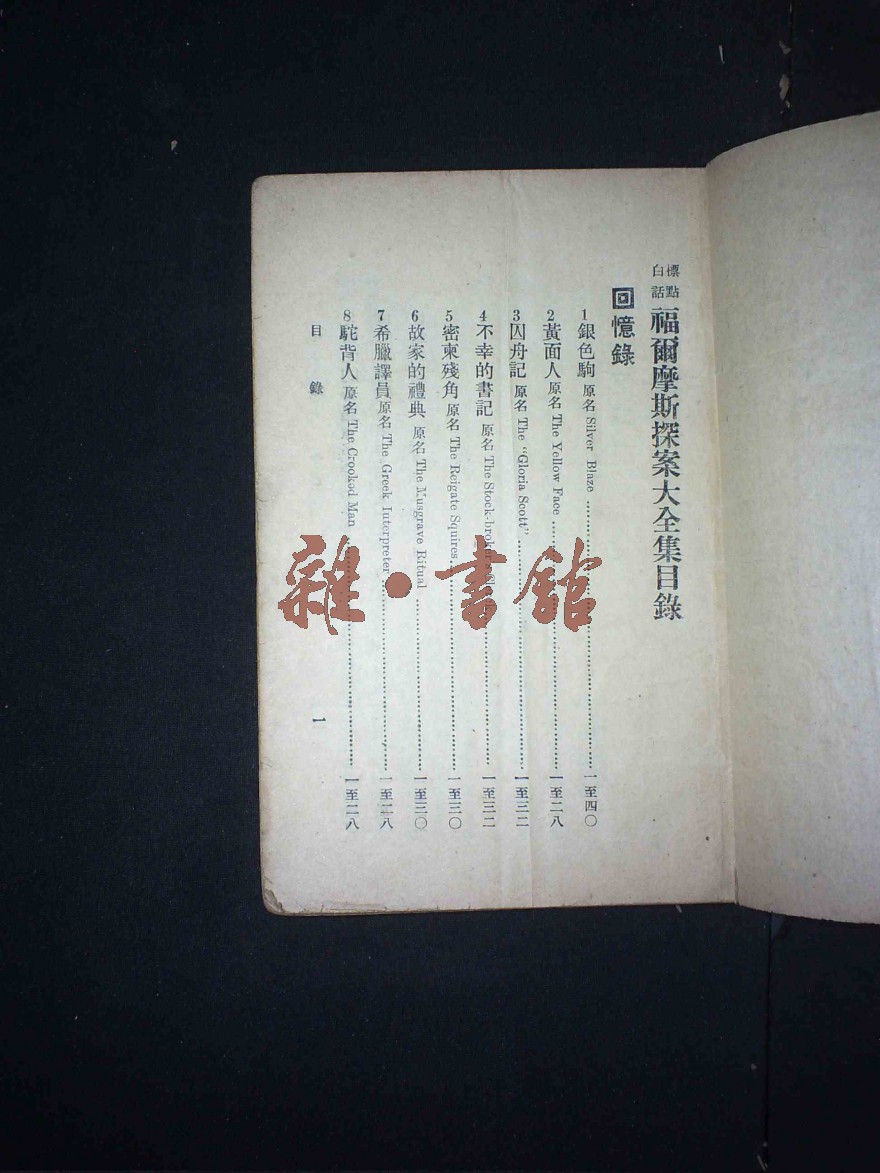 標點白話福爾摩斯探案大全集目錄
回憶錄
1 銀色駒 原名 Silver Blaze 一至四〇
2 黃面人 原名 The Yellow Face 一至二八
3 囚舟記 原名 The "Gloria Scott" 一至三二
4 不幸的書記 原名 The Stock-brok 一至三二
5 密柬殘角 原名 The Reigate Squires 一至三〇
6 故家的禮典 原名 The Musgrave Ritual 一至三〇
7 希臘譯員 原名 The Greek Interpreter 一至二八
8 駝背人 原名 The Crooked Man 一至二八
目錄 一
雜·書館